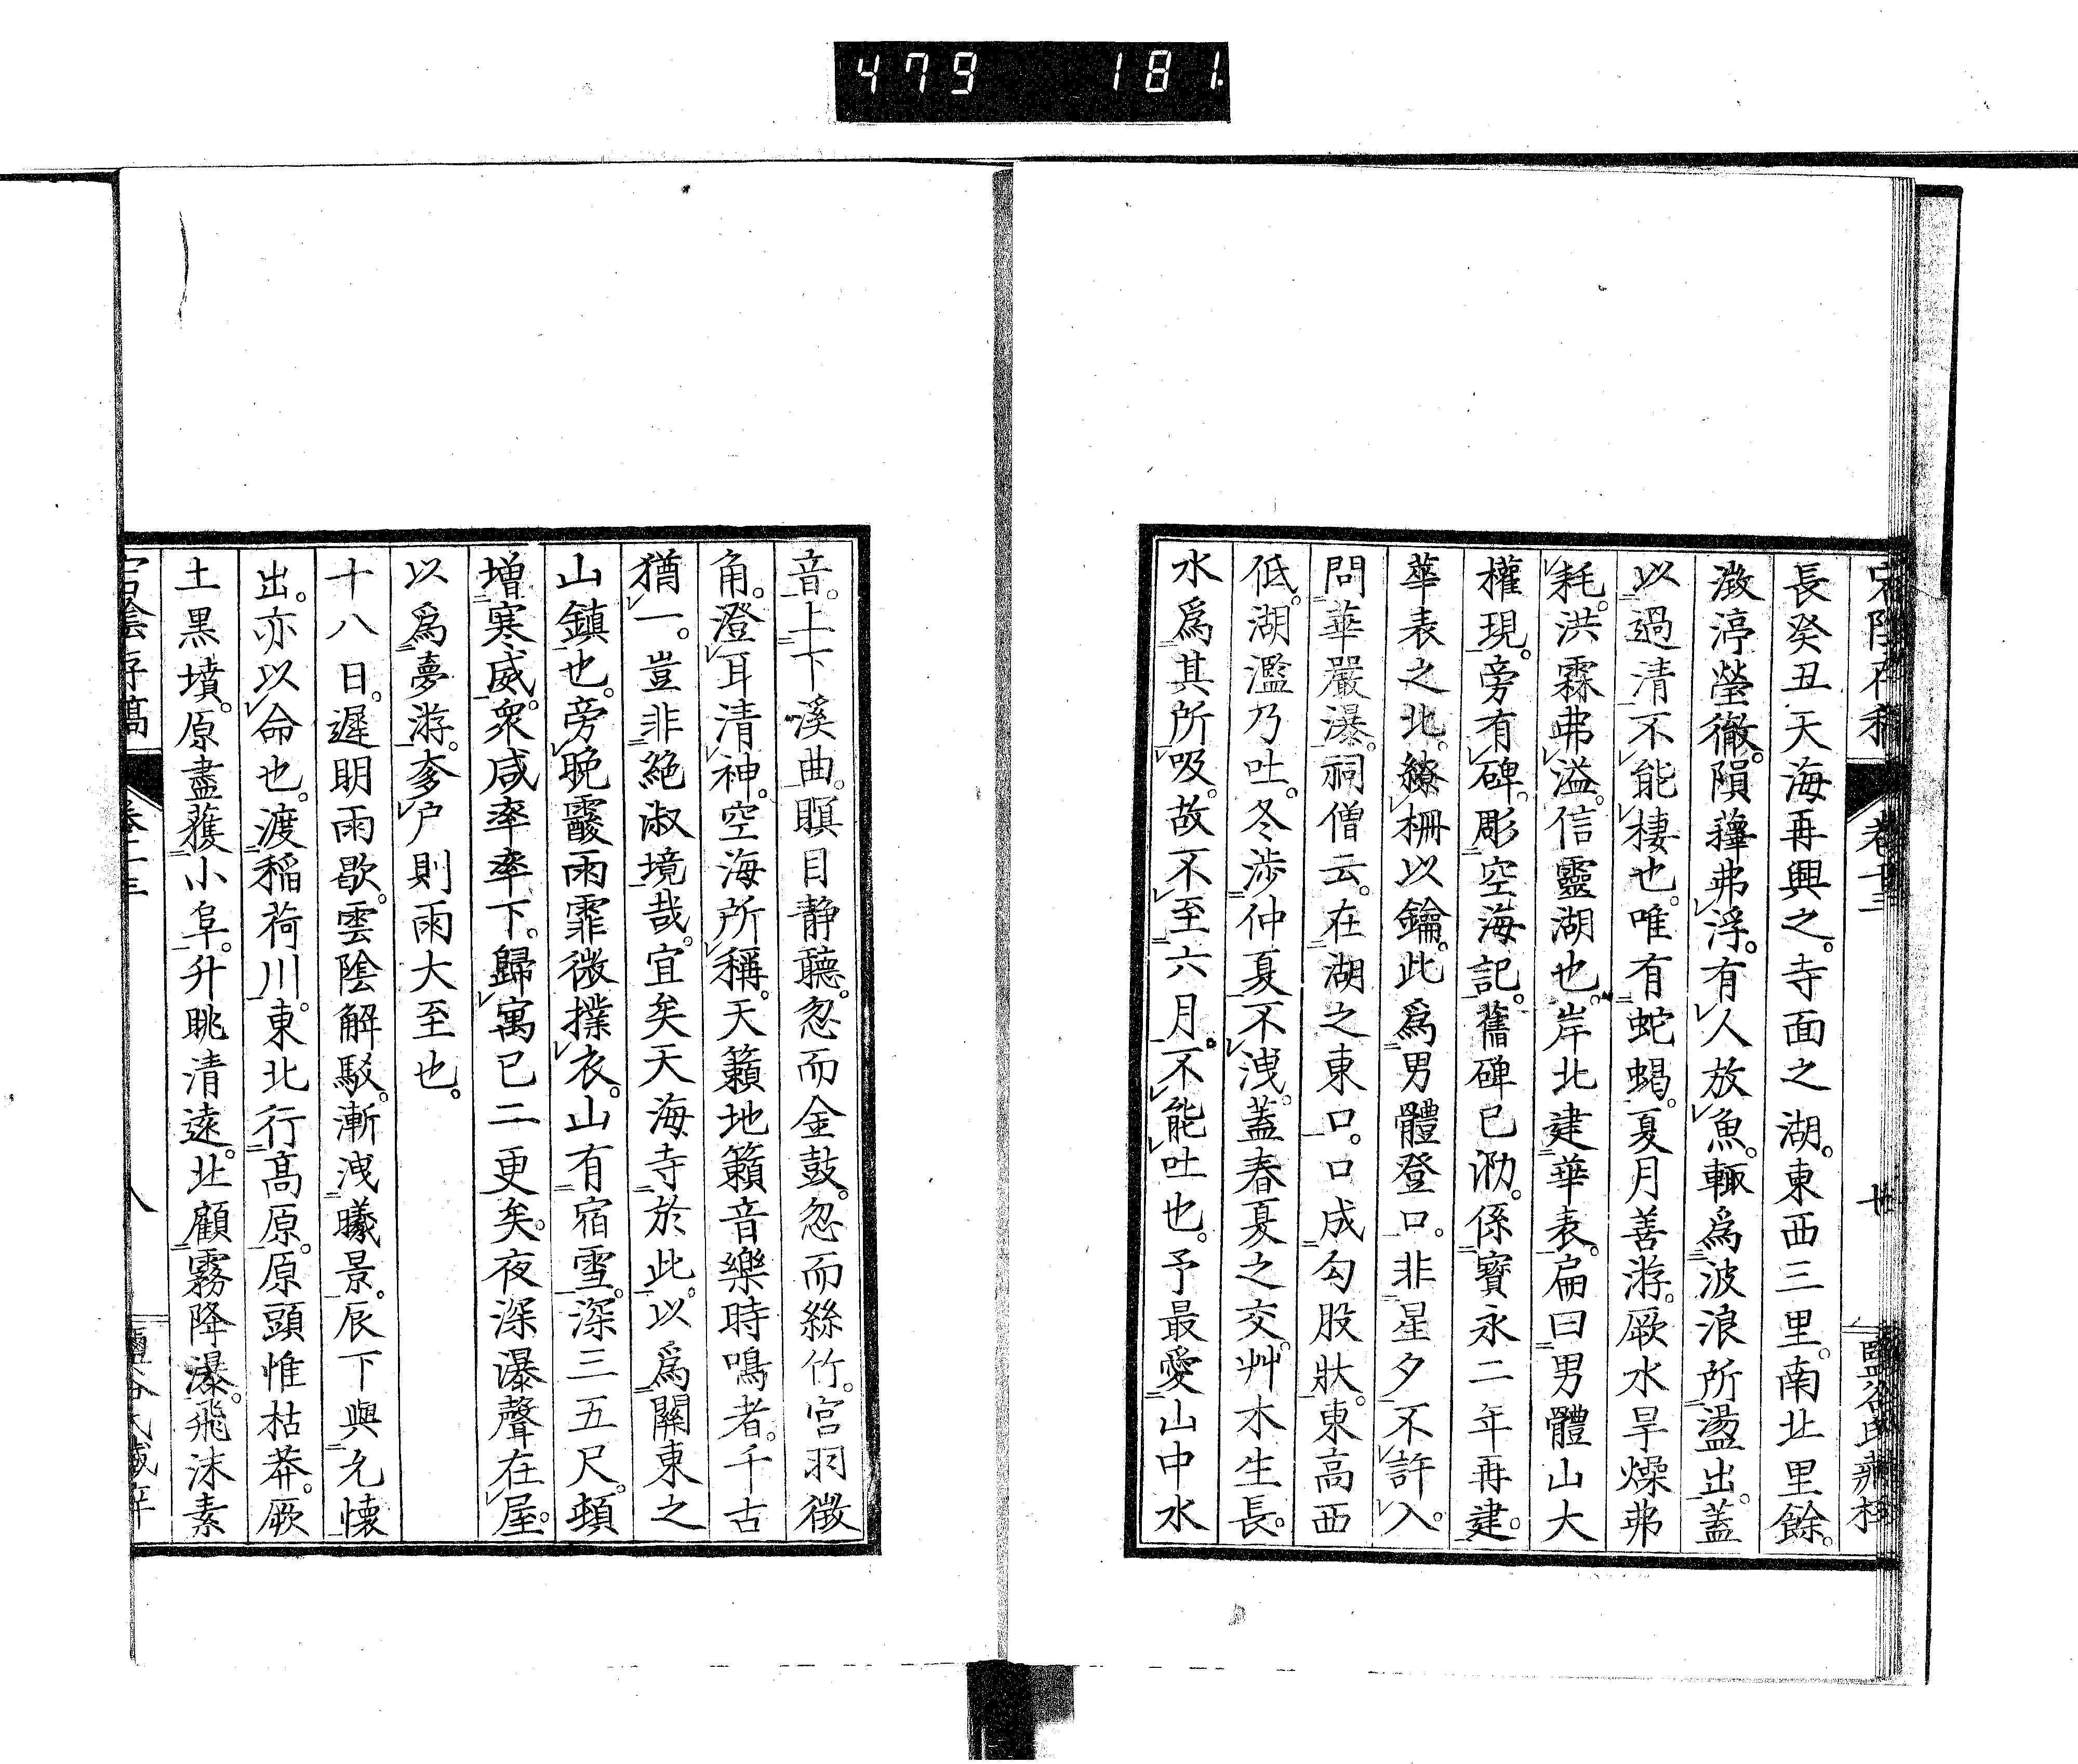 479 181
宕陰存稿 卷十三 廿
長癸丑天海再興之。寺面之湖。東西三里。南北里餘。
澂渟瑩徹。隕蘀弗浮。有人放魚。輙爲波浪所盪出。蓋
以過清不能棲也。唯有蛇蝎。夏月善游。厥水旱燥弗
耗。洪霖弗溢。信靈湖也。岸北建華表。扁曰男體山大
權現。旁有碑。彫空海記。舊碑已泐。係寶永二年再建。
華表之北。繚柵以鑰。此爲男體登口。非星夕不許入。
問華嚴瀑。祠僧云。在湖之東口。口成勾股狀。東高西
低。湖濫乃吐。冬涉仲夏不洩。蓋春夏之交。艸木生長。
水爲其所吸。故不至六月。不能吐也。予最愛山中水
音。上下溪曲。瞑目静聽。忽而金鼓。忽而絲竹。宮羽徵
角。澄耳清神。空海所稱。天籟地籟音樂時鳴者。千古
猶一。豈非絶淑境哉。宜矣天海寺於此。以爲關東之
山鎮也。旁晩霰雨霏微撲衣。山有宿雪。深三五尺。頓
增寒威。衆咸率率下。歸寓已二更矣。夜深瀑聲在屋。
以爲夢游。夌户則雨大至也。
十八日。遲明雨歇。雲陰解駁。漸洩曦景。辰下與允懷
出。亦以命也。渡稲荷川。東北行高原。原頭惟枯莽。厥
土黒墳。原盡蘿小阜。升眺清遠。北顧霧降瀑。飛沫素